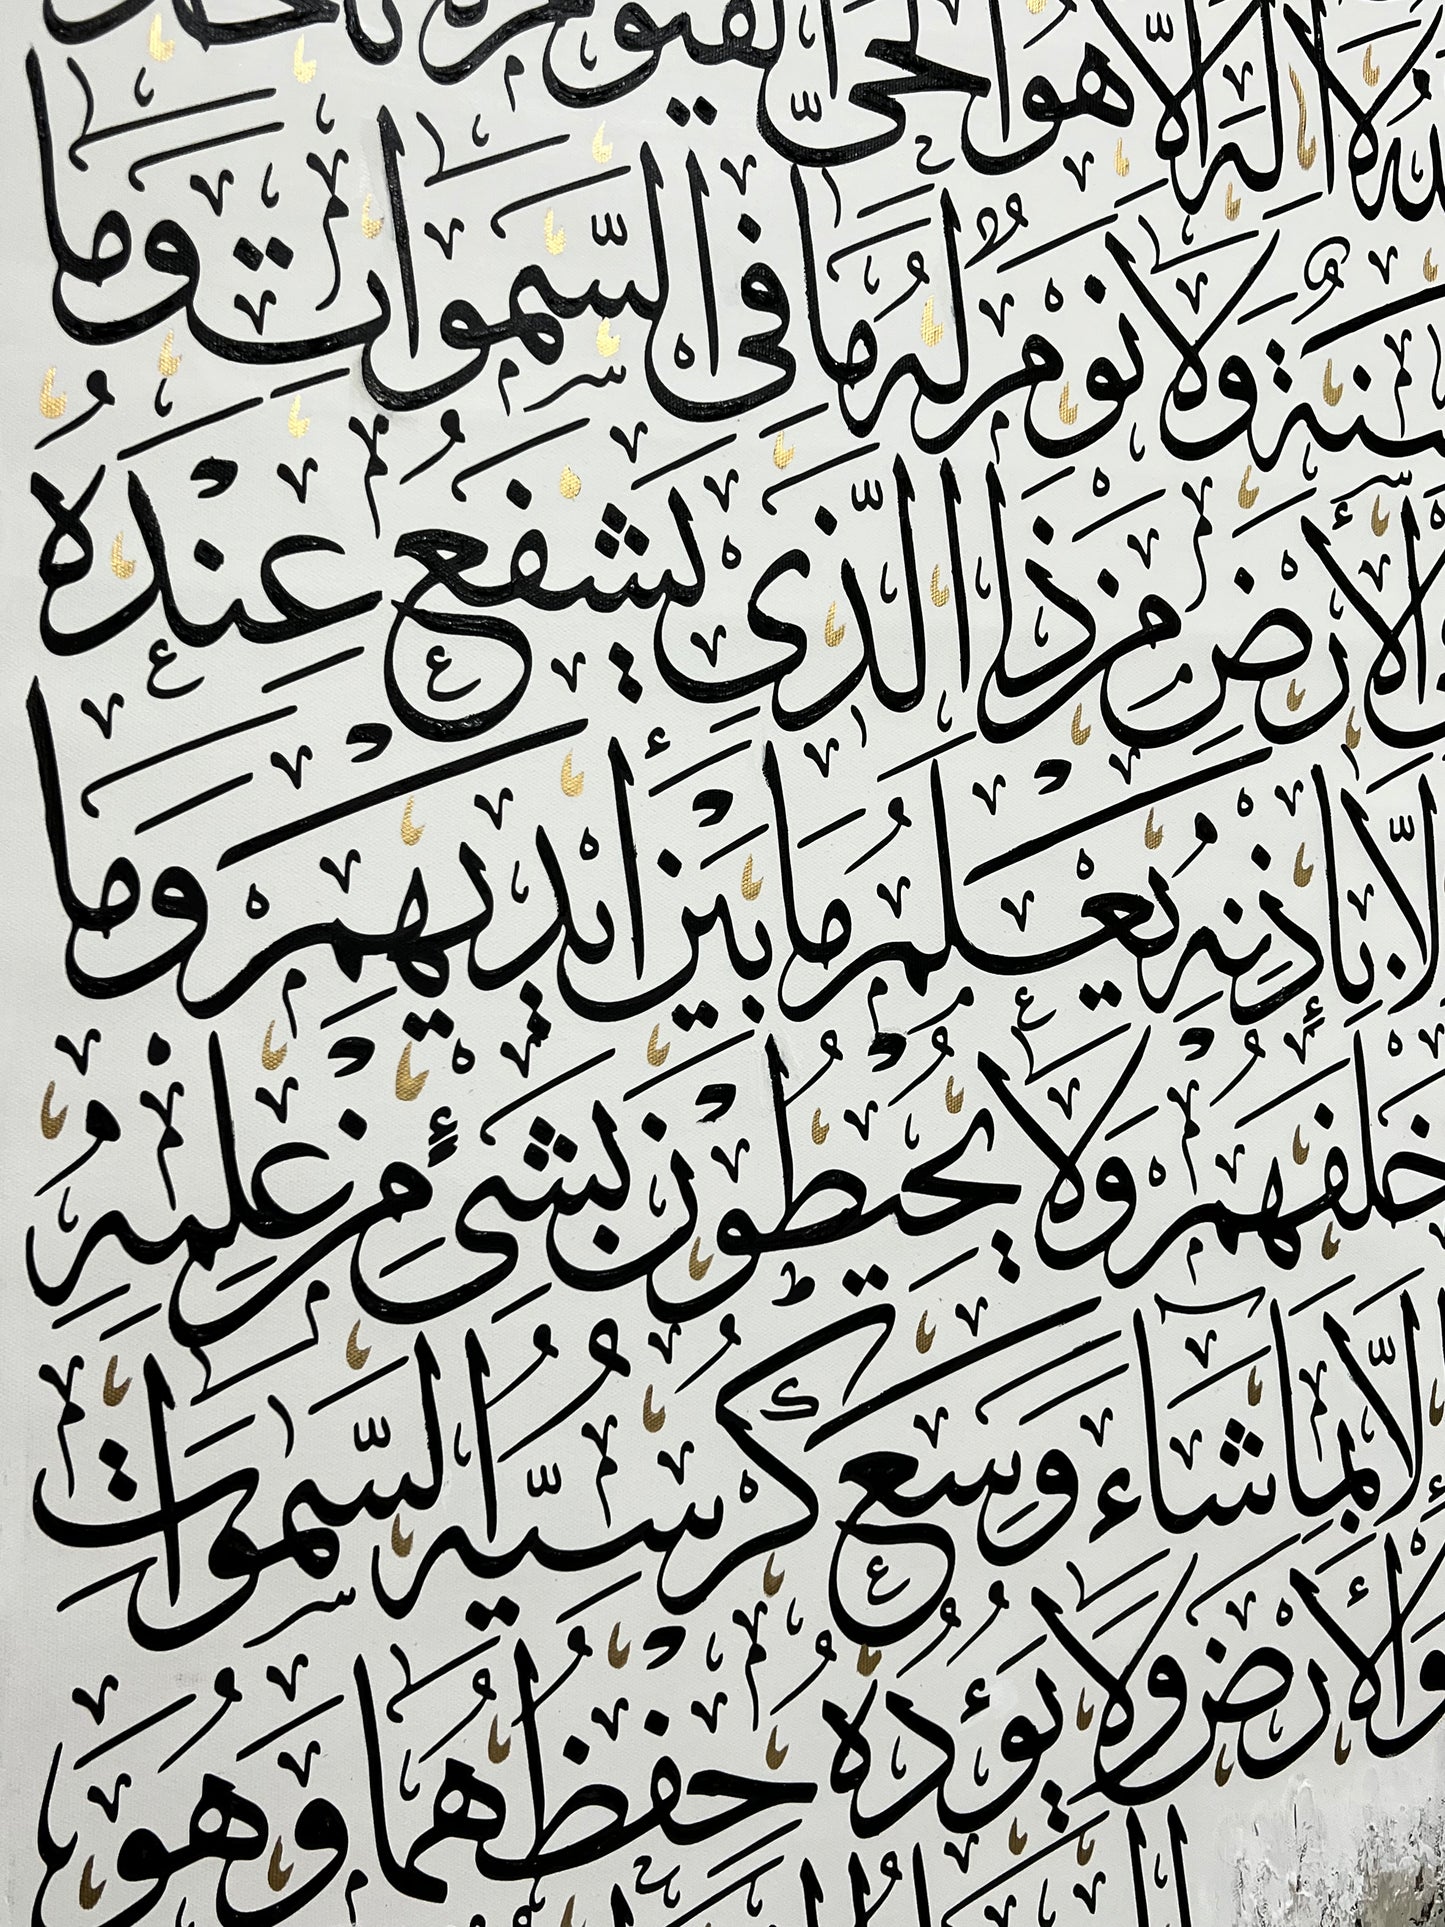 لَا اِلٰهَ اِلَّا هُوَ الْحَىُّ الْقَيُّومُ
سِنَةٌ وَلَا نَوْمٌ لَهُ مَا فِى السَّمٰوَاتِ وَمَا
الْأَرْضِ مَنْ ذَا الَّذِى يَشْفَعُ عِنْدَهُ
إِلَّا بِإِذْنِهِ يَعْلَمُ مَا بَيْنَ أَيْدِيهِمْ وَمَا
خَلْفَهُمْ وَلَا يُحِيطُونَ بِشَىْءٍ مِنْ عِلْمِهِ
إِلَّا بِمَا شَاءَ وَسِعَ كُرْسِيُّهُ السَّمٰوَاتِ
وَالْأَرْضَ وَلَا يَؤُدُهُ حِفْظُهُمَا وَهُوَ